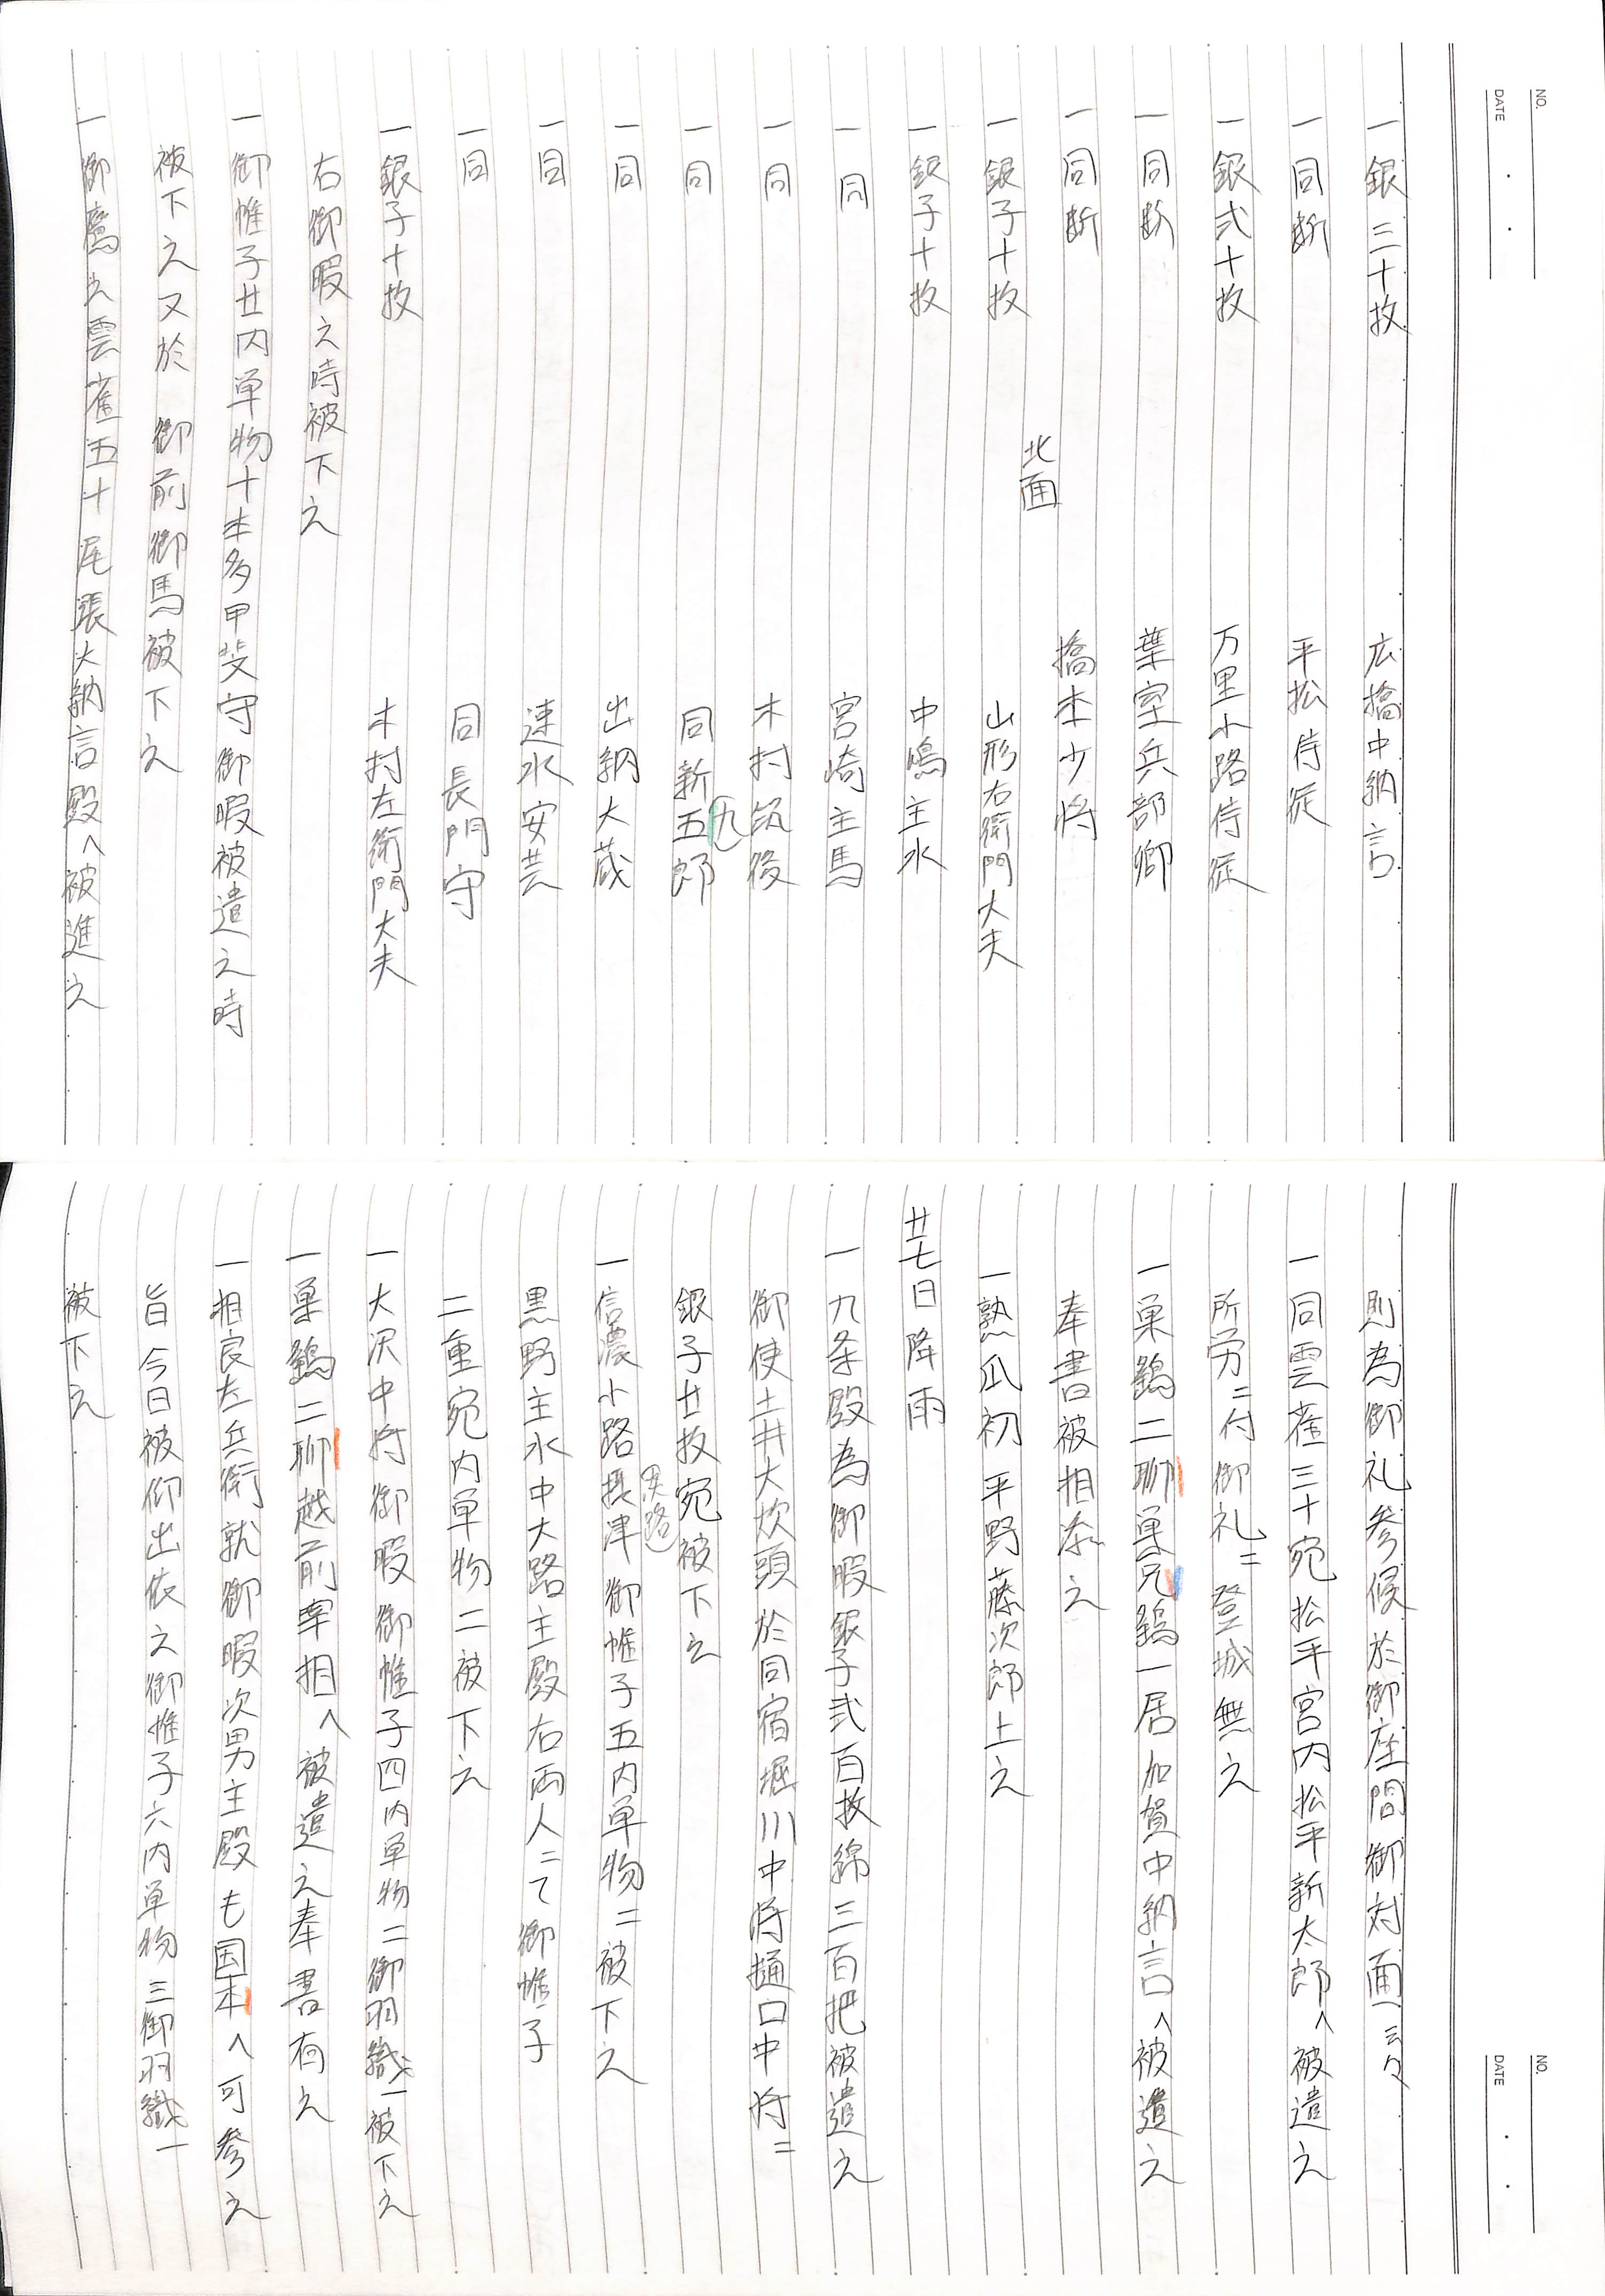 NO.
DATE
一銀三十枚 広橋中納言
一同断 平松侍従
一銀弐十枚 万里小路侍従
一同断 葉室兵部卿
一同断 橋本少将
北面
一銀子十枚 山形右衛門大夫
一銀子十枚 中嶋主水
一同 宮崎主馬
一同 木村筑後
一同 同新五郎
九
一同 出納大蔵
一同 速水安芸
一同 同長門守
一銀子十枚 木村左衛門大夫
右御暇之時被下之
一御帷子廿内単物十本多甲斐守御暇被遣之時
被下之又於 御前御馬被下之
一御鷹之雲雀五十尾張大納言殿へ被進之
NO.
DATE
則為御礼参候於御座間御対面云々
一同雲雀三十宛松平宮内松平新太郎へ被遣之
所労ニ付御礼ニ登城無之
一巣鷂二聯巣兄鷂一居加賀中納言へ被遣之
奉書被相添之
一熟瓜初 平野藤次郎上之
廿七日降雨
一九条殿為御暇銀子弐百枚綿三百把被遣之
御使土井大炊頭於同宿堀川中将樋口中将ニ
銀子廿枚宛被下之
一信濃小路摂津御帷子五内単物二被下之
淡路
黒野主水中大路主殿右両人ニて御帷子
二重宛内単物二被下之
一大沢中将御暇御帷子四内単物二御羽織一被下之
一巣鷂二聯越前宰相へ被遣之奉書有之
一相良左兵衛就御暇次男主殿も国本へ可参之
旨今日被仰出依之御帷子六内単物三御羽織一
被下之